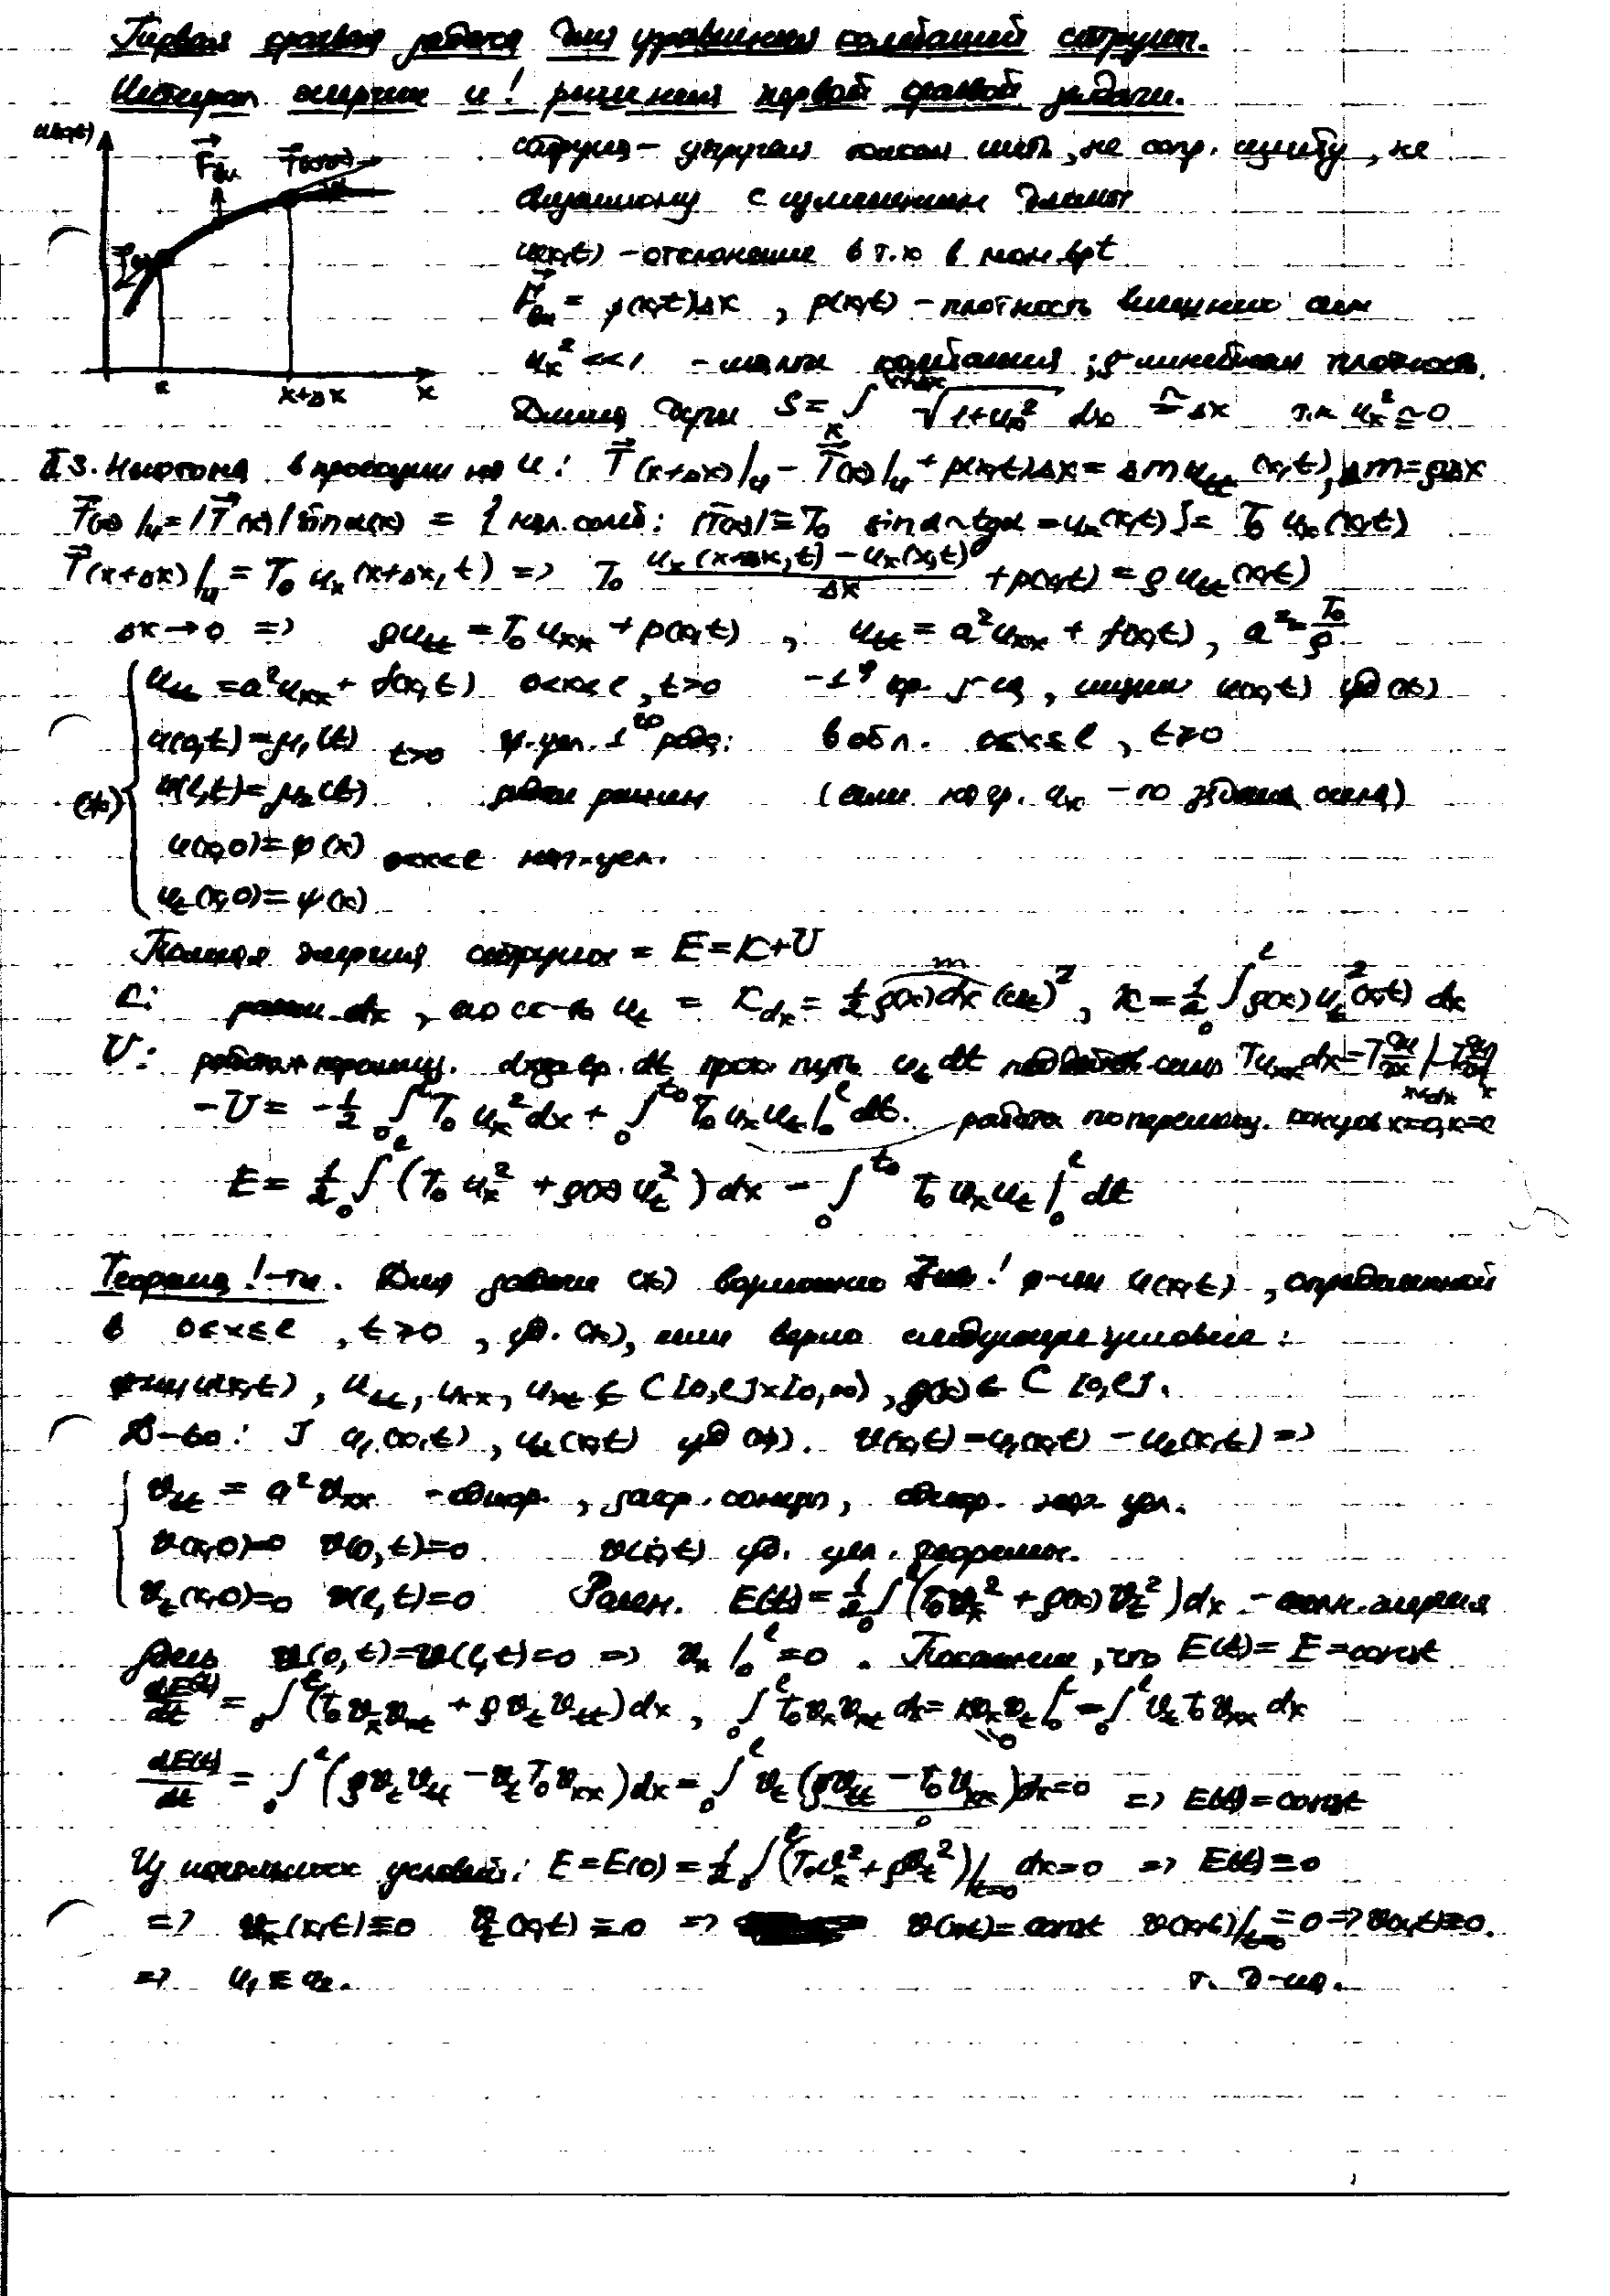 Первая краевая задача для уравнения колебаний струны.
Интеграл энергии и ! решения первой краевой задачи.
u(x,t)
F⃗вн T⃗(x+Δx)
T⃗(x)
x x+Δx x
струна – упругая тонкая нить, не сопр. изгибу, не
связанному с изменением длины
u(x,t) – отклонение в т. x в мом. вр t
F⃗вн = p(x,t)Δx , p(x,t) – плотность внешних сил
uₓ² << 1 – малые колебания ; ρ – линейная плотность.
Длина дуги S = ∫ₓ^{x+Δx} √(1+uₓ²) dx ≅ Δx т.к. uₓ² ≃ 0
II З. Ньютона в проекции на u: T⃗(x+Δx)|ᵤ – T⃗(x)|ᵤ + p(x,t)Δx = Δm uₜₜ(x,t), Δm = ρΔx
T⃗(x)|ᵤ = |T⃗(x)| sin α(x) = { мал. колеб: |T(x)| ≅ T₀ sin α ~ tg α = uₓ(x,t) } = T₀ uₓ(x,t)
T⃗(x+Δx)|ᵤ = T₀ uₓ(x+Δx, t) => T₀ (uₓ(x+Δx,t) – uₓ(x,t))/Δx + p(x,t) = ρ uₜₜ(x,t)
Δx → 0 => ρuₜₜ = T₀ uₓₓ + p(x,t) , uₜₜ = a²uₓₓ + f(x,t), a² = T₀/ρ
uₜₜ = a²uₓₓ + f(x,t) 0<x<l, t>0 – 1ᵃ кр. з-ча, ищем u(x,t) уд (*)
u(0,t) = μ₁(t) t>0 гр. усл. 1ᵒᵍᵒ рода: в обл. 0≤x≤l, t≥0
(*) u(l,t) = μ₂(t) задан режим (если на гр. uₓ – то задана сила)
u(x,0) = φ(x) 0≤x≤l нач. усл.
uₜ(x,0) = ψ(x)
Полная энергия струны = E = K+U
K: dx, со ск-ю uₜ = K_dx = ½ ρ(x)dx (uₜ)², K = ½ ∫₀^l ρ(x) uₜ²(x,t) dx
m
U: работа перемещ. dx за вр. dt прох. путь uₜ dt под действ. силы Tuₓₓdx = T ∂u/∂x|_{x+dx} – T ∂u/∂x|ₓ
–U = –½ ∫₀^l T₀ uₓ² dx + ∫₀^{t₀} T₀ uₓuₜ|₀^l dt. работа по перемещ. концов x=0, x=l
E = ½ ∫₀^l (T₀ uₓ² + ρ(x) uₜ²) dx – ∫₀^{t₀} T₀ uₓuₜ|₀^l dt
Теорема !-ти. Для задачи (*) возможно ! ф-ии u(x,t), определенной
в 0≤x≤l, t≥0, уд. (*), если верно следующее условие:
u(x,t), uₜₜ, uₓₓ, uₓₜ ∈ C[0,l]×[0,∞), ρ(x) ∈ C[0,l].
Д-во: ] u₁(x,t), u₂(x,t) уд (*). v(x,t) = u₁(x,t) – u₂(x,t) =>
vₜₜ = a²vₓₓ – однор., закр. концы, однор. нач. усл.
v(x,0)=0 v(0,t)=0 v(x,t) уд. усл. теоремы.
vₜ(x,0)=0 v(l,t)=0 Рассм. E(t) = ½ ∫₀^l (T₀vₓ² + ρ(x)vₜ²)dx – полн. энергия
Здесь v(0,t)=v(l,t)=0 => vₓ|₀^l = 0. Покажем, что E(t) = E = const
dE(t)/dt = ∫₀^l (T₀vₓvₓₜ + ρvₜvₜₜ)dx, ∫₀^l T₀vₓvₓₜ dx = vₓvₜ|₀^l – ∫₀^l vₜT₀vₓₓ dx
=0
dE(t)/dt = ∫₀^l (ρvₜvₜₜ – vₜT₀vₓₓ)dx = ∫₀^l vₜ(ρvₜₜ – T₀vₓₓ)dx = 0 => E(t) = const
0
Из начальных условий: E = E(0) = ½ ∫₀^l (T₀vₓ² + ρvₜ²)|_{t=0} dx = 0 => E(t) ≡ 0
=> vₓ(x,t) ≡ 0 vₜ(x,t) ≡ 0 => v(x,t) = const v(x,t)|_{t=0} = 0 => v(x,t) ≡ 0.
=> u₁ ≡ u₂. т. д-на.